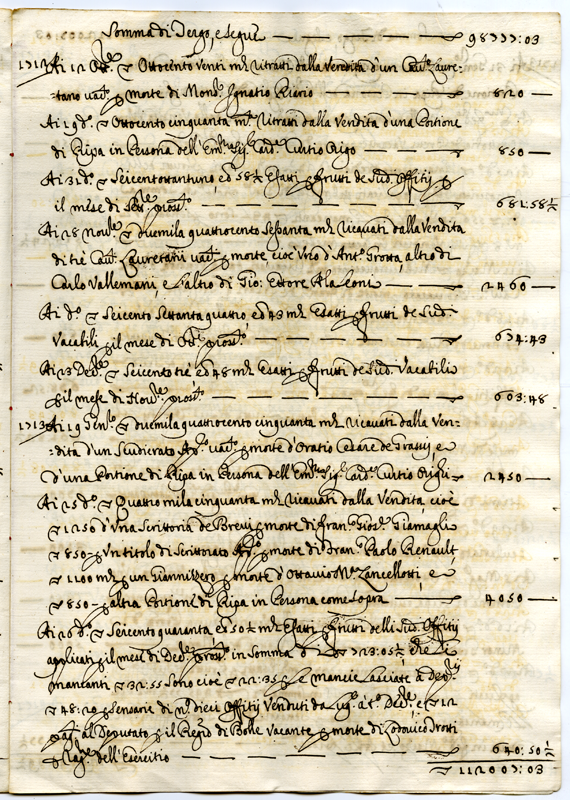 Somma di Tergo, e segue — — — — 98777:03
1712 Ai 12 Ott.e Ottocento venti m.ta ritratti dalla Vendita d'un Cau.to Laure-
-tano vac.to p morte di Mons.r Ignatio Riario — 820 —
Ai 19 d.o Ottocento cinquanta m.ta ritratti dalla Vendita d'una Portione
di Ripa in Persona dell'Em.mo Sig.r Card. Curtio Origo — 850 —
Ai 31 d.o Seicentottantuno, ed 58½ Esatti p frutti de Sud. Offitij p
il mese di pross.o — 681:58½
Ai 18 Nov.re duemila quattrocento sessanta m.ta ricauati dalla Vendita
di tre Cau.ti Lauretani vac.ti p morte, cioè Vno d'Ant.o Grotta, altro di
Carlo Vallemani, e l'altro di Gio: Ettore Alaleoni — 2460 —
Ai d.o Seicento Settanta quattro ed 43 m.ta Esatti p frutti de Sud.
Vacabili p il mese di Ott.e pross.o — 674:43
Ai 23 Dec.re Seicento tre ed 48 m.ta Esatti p frutti de Sud. Vacabili
p il mese di Nov.re pross.o — 603:48
1713 Ai 19 Gen.ro duemila quattrocento cinquanta m.ta ricauati dalla Ven-
-dita d'un Scudierato Ap.o vac.to p morte d'Oratio Cesare de Grassij, e
d'una Portione di Ripa in Persona dell'Em.mo Sig.r Card. Curtio Orighi — 2450 —
Ai 25 d.o Quattro mila cinquanta m.ta ricauati dalla Vendita, cioè
1250 d'Vna Scrittoria de Breui p morte di Fran.co Gios.e Giamagli
850 — p Vn titolo di Scrittorato p morte di Fran.co Paolo Renault
1100 m.ta p un Giannizzero p morte d'Ottauio M.a Lancellotti e
850 — p altra Portione di Ripa in Persona come sopra — 4050 —
Ai 20 d.o Seicento quaranta ed 50½ m.ta Esatti p frutti delli Sud. Offitij
applicati p il mese di Dec.re pross.o in Somma di 723:05½ che li
mancanti 32:55 Sono cioè 22:35 p le mancie lasciate à
48:20 p Sensarie di n.o dieci Offitij Venduti da Lug.o à t.o Dec.re e 12
pag.ti al Deputato p il Regio di Bolle Vacante p morte di Lodouico
p lag.e dell'Esercitio — 640:50½
112007:03